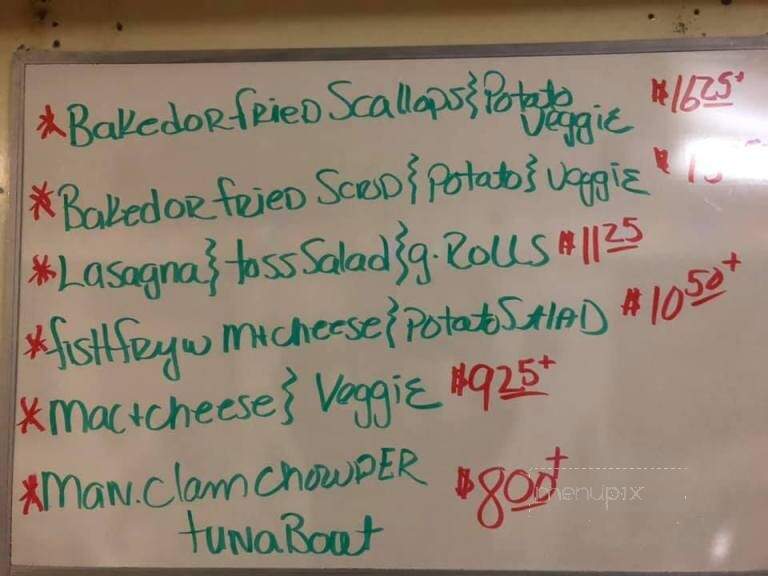 * BakedORfRIED Scallops} Potato Veggie $16.25+
* BakedOR fRIED SCROD { Potato } VeggiE $
* Lasagna} toss Salad } g. ROLLS $11.25
* fisHfRy w m+cheese } Potato SALAD $10.50+
* mac+cheese } VeggiE $9.25+
* MAN. Clam CHOWDER $8.00+
tuna Boat
menupix